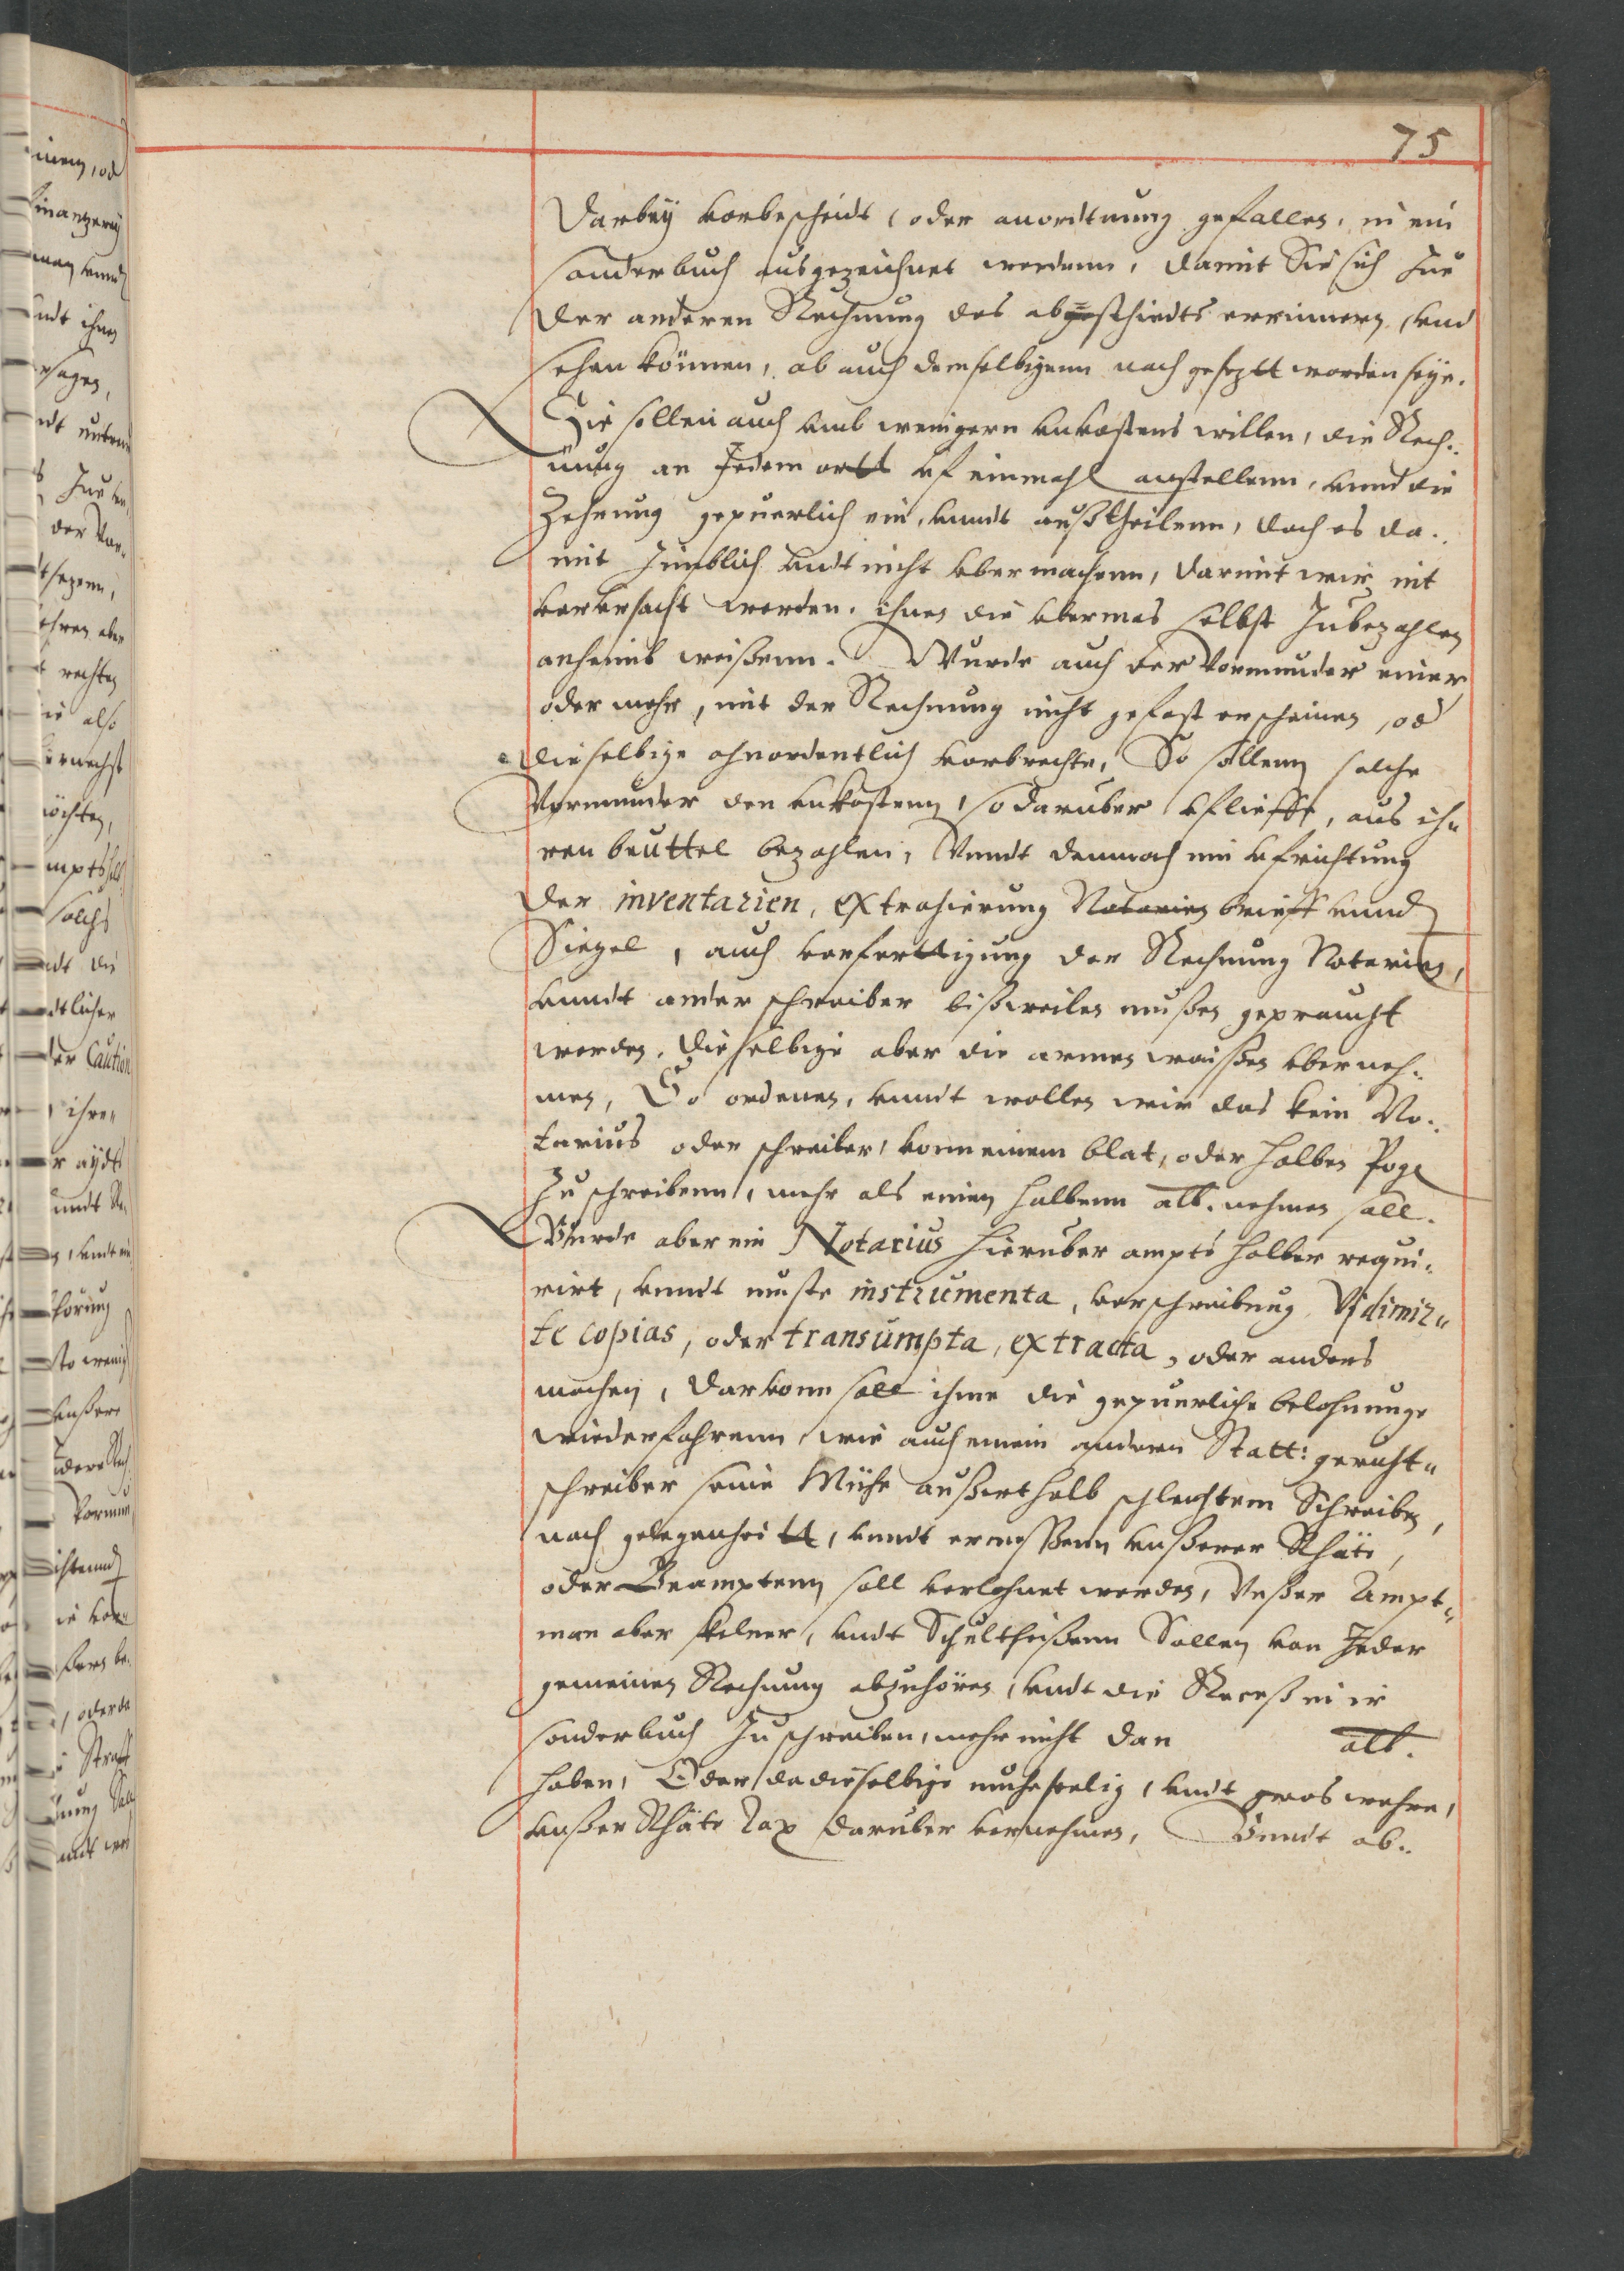 75
Darbey vorbescheidt, oder anordtnung gefallen, in ein
sonderbuch aufgezeichnet werdenn, damit Sie sich zue
der anderen Rechnung des abscheidts errinnern, vnd
sehen können, ob auch demselbigenn nach gesetzt worden seye.
Sie sollen auch vmb wenigern vnkostens willen, die Rech..
nung an Jedem ortt vf einmahl anstellenn, vnnd die
Zehrung gepuerlich ein, vnndt außtheilenn, doch es da..
mit zimblich vndt nicht vbermachenn, darmit wir nit
verursacht werden, ihnen die vbermas selbst zubezahlen
anheimb weißenn. Wurde auch der Vormunder einer
oder mehr, mit der Rechnung nicht gefast erscheinen, od
dieselbige ohnordentlich vorbrechte, So sollenn solche
Vormunder den vnkostenn, so daruber vflieffe, aus ih-
ren beuttel bezahlen, Vnndt demnach im vfrichtung
der inventarien, extrahierung brieff vnnd
Siegel, auch verferttigung der Rechnung Notarien,
vnndt ander schreiber bißweilen mußen gepraucht
werden, dieselbige aber die armen waißen vberneh..
men, So ordenen, vnndt wollen wir das kein No..
tarius oder schreiber, vonn einem blat, oder halben Poge
zu schreibenn, mehr als einen halbenn alb. nehmen soll.
Wurde aber ein Notarius hieruber ampts halber requi-
rirt, vnndt muste instrumenta, verschreibung Vidimir-
te copias, oder transumpta, extracta, oder anders
machen, darvonn soll ihme die gepuerliche belohnunge
wiederfahrenn, wie auch einem andern Statt: gericht-
schreiber seine Mühe außerthalb schlechtem Schreiben,
nach gelegenheitt, vnndt ermeßenn vnßerer Rhäte,
oder Beamptenn soll verlohnet werden, Vnßer Ampt-
man aber kelner, vndt Schultheißenn Sollen von Jeder
gemeinen Rechnung abzuhören, vndt die Receß in ir
sonderbuch zu schreiben, mehr nicht dan alb.
haben, Oder da dieselbige muheseelig, vndt gros wehre,
vnßer Rhäte Tax daruber vernehmen, Vnndt ob..